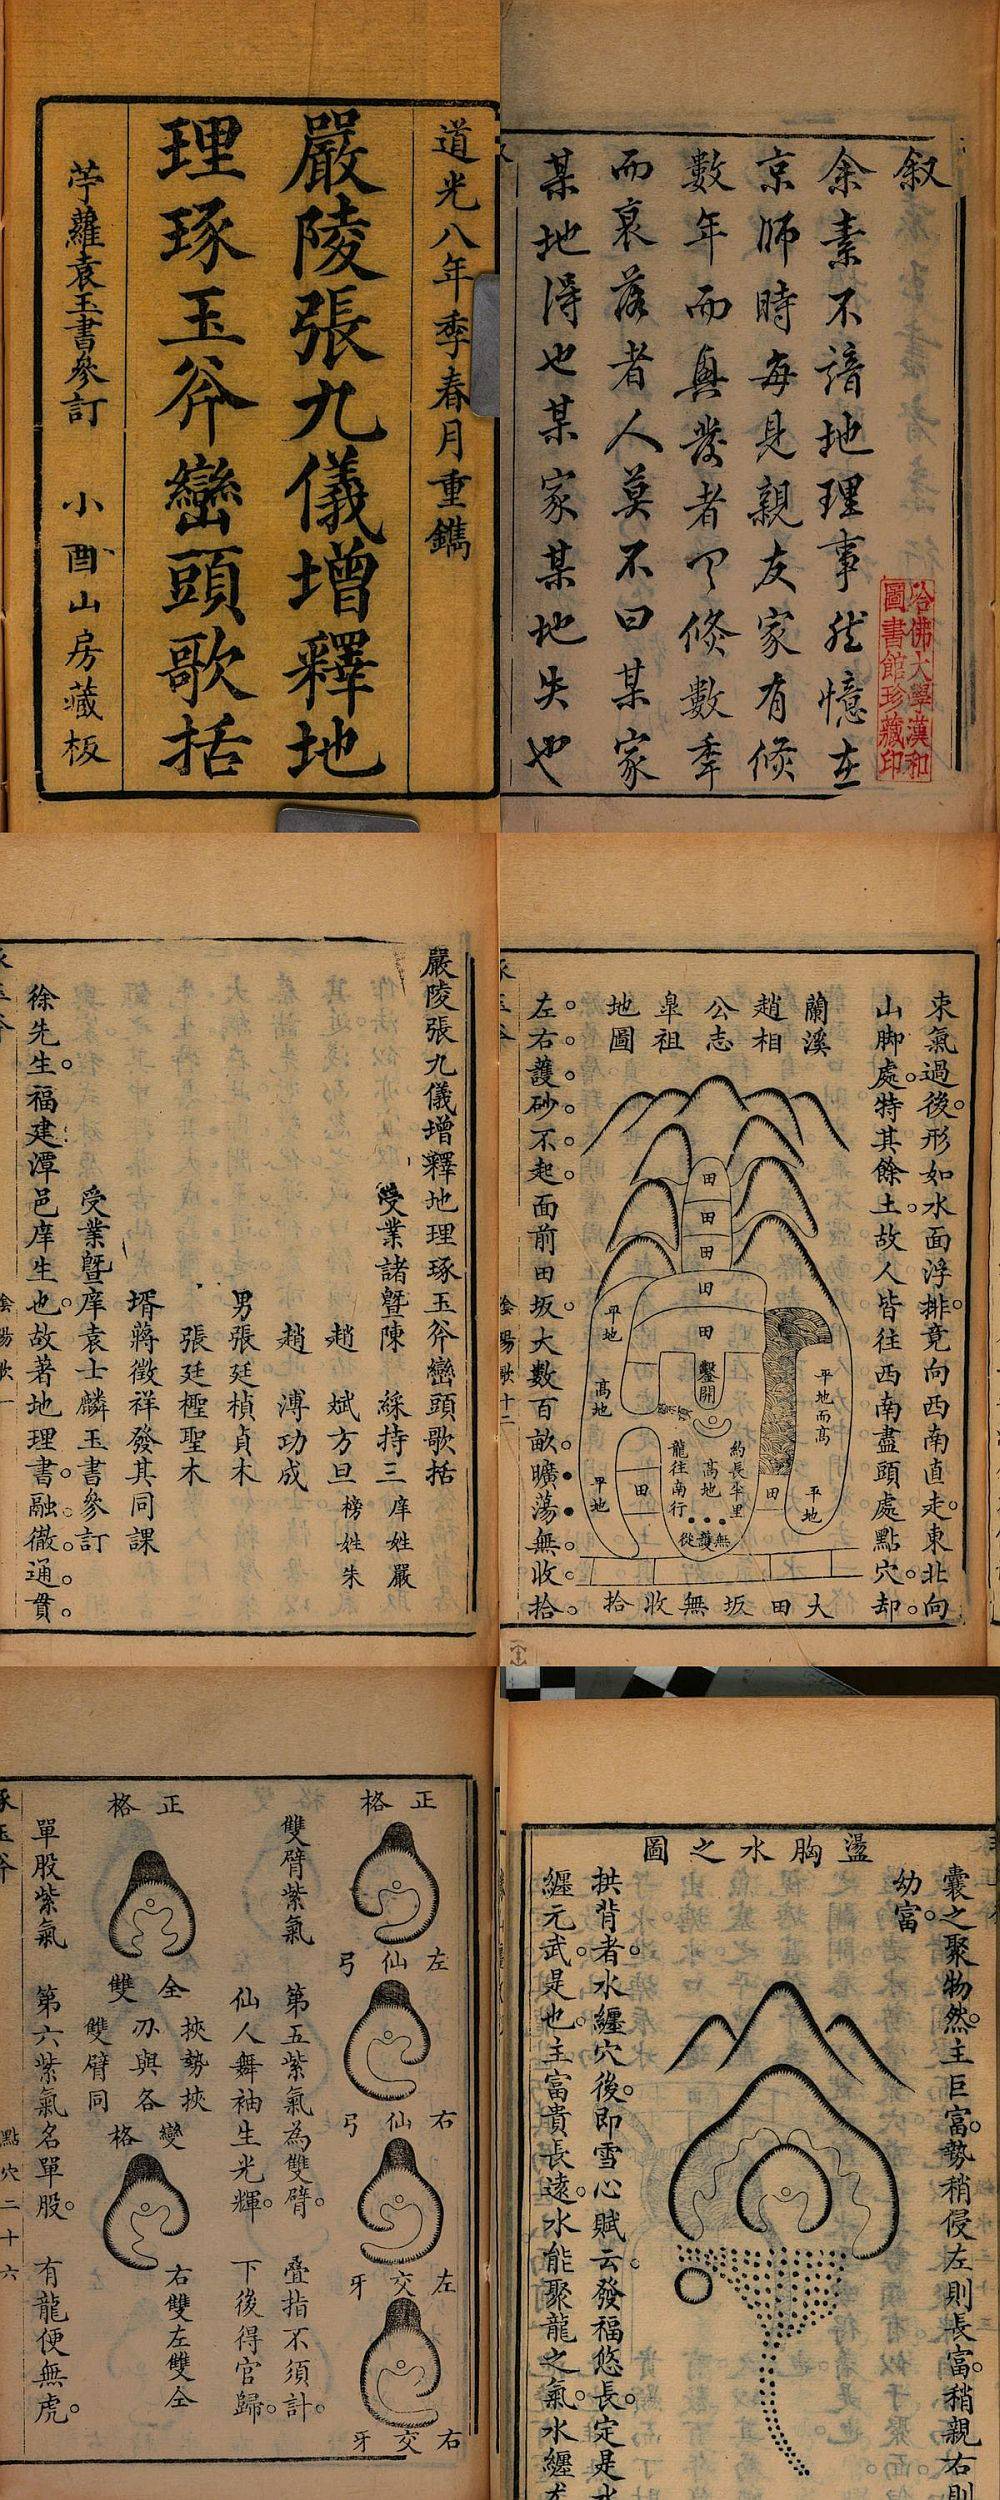 道光八年季春月重鐫
嚴陵張九儀增釋地
理琢玉斧巒頭歌括
苧蘿袁玉書參訂 小酉山房藏板
叙
余素不諳地理事然憶在
京師時每見親友家有倐
數年而興發者又倐數年
而衰落者人莫不曰某家
某地得也某家某地失也
哈佛大學漢和
圖書館珍藏印
嚴陵張九儀增釋地理琢玉斧巒頭歌括
受業諸暨陳 綵持三 庠姓嚴
趙 斌方旦 榜姓朱
趙 溥功成
男張廷楨貞木
張廷樞聖木
壻蔣徵祥發其同課
受業暨庠袁士麟玉書參訂
徐先生福建潭邑庠生也故著地理書融徹通貫
束氣過後形如水面浮排竟向西南直走東北向
山脚處特其餘土故人皆往西南盡頭處點穴却
蘭溪
趙相
公志
皐祖
地圖
田
田
田
田
田
平地
高地
平地
田
鑿開
約長半里
高地
龍往南行
無護從
田
平地而高
平地
大田坂無收拾
左右護砂不起面前田坂大數百畝曠蕩無收拾
陰陽歌十二
正格
左仙弓
右仙弓
左交牙
右交牙
雙臂紫氣 第五紫氣為雙臂 叠指不須計
仙人舞袖生光輝 下後得官歸
正格
全雙
挾勢挾
刅與各
雙臂同
變格
右雙左雙全
單股紫氣 第六紫氣名單股 有龍便無虎
點穴二十六
囊之聚物然主巨富勢稍侵左則長富稍親右則
幼富
盪胸水之圖
拱背者水纏穴後即雪心賦云發福悠長定是水
纏元武是也主富貴長遠水能聚龍之氣水纏